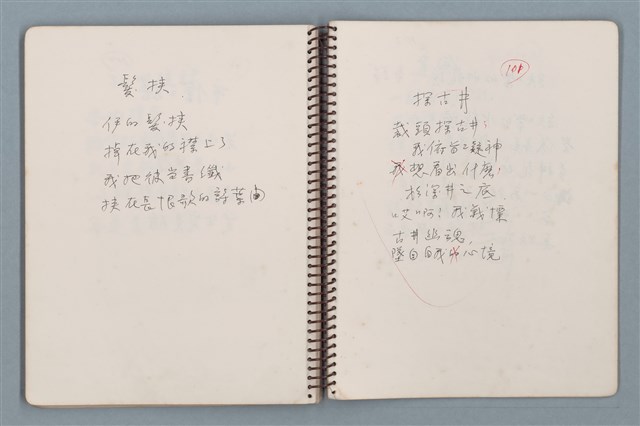 髮挾
伊的髮挾
掉在我的襟上了
我把牠當書纖
挾在長恨歌的詩葉曲
101
探古井
裁頭探古井；
我俯首凝神
我想看出什麼，
於深井之底
“哎啊！我戰慄
古井幽魂，
墜自自我的心境